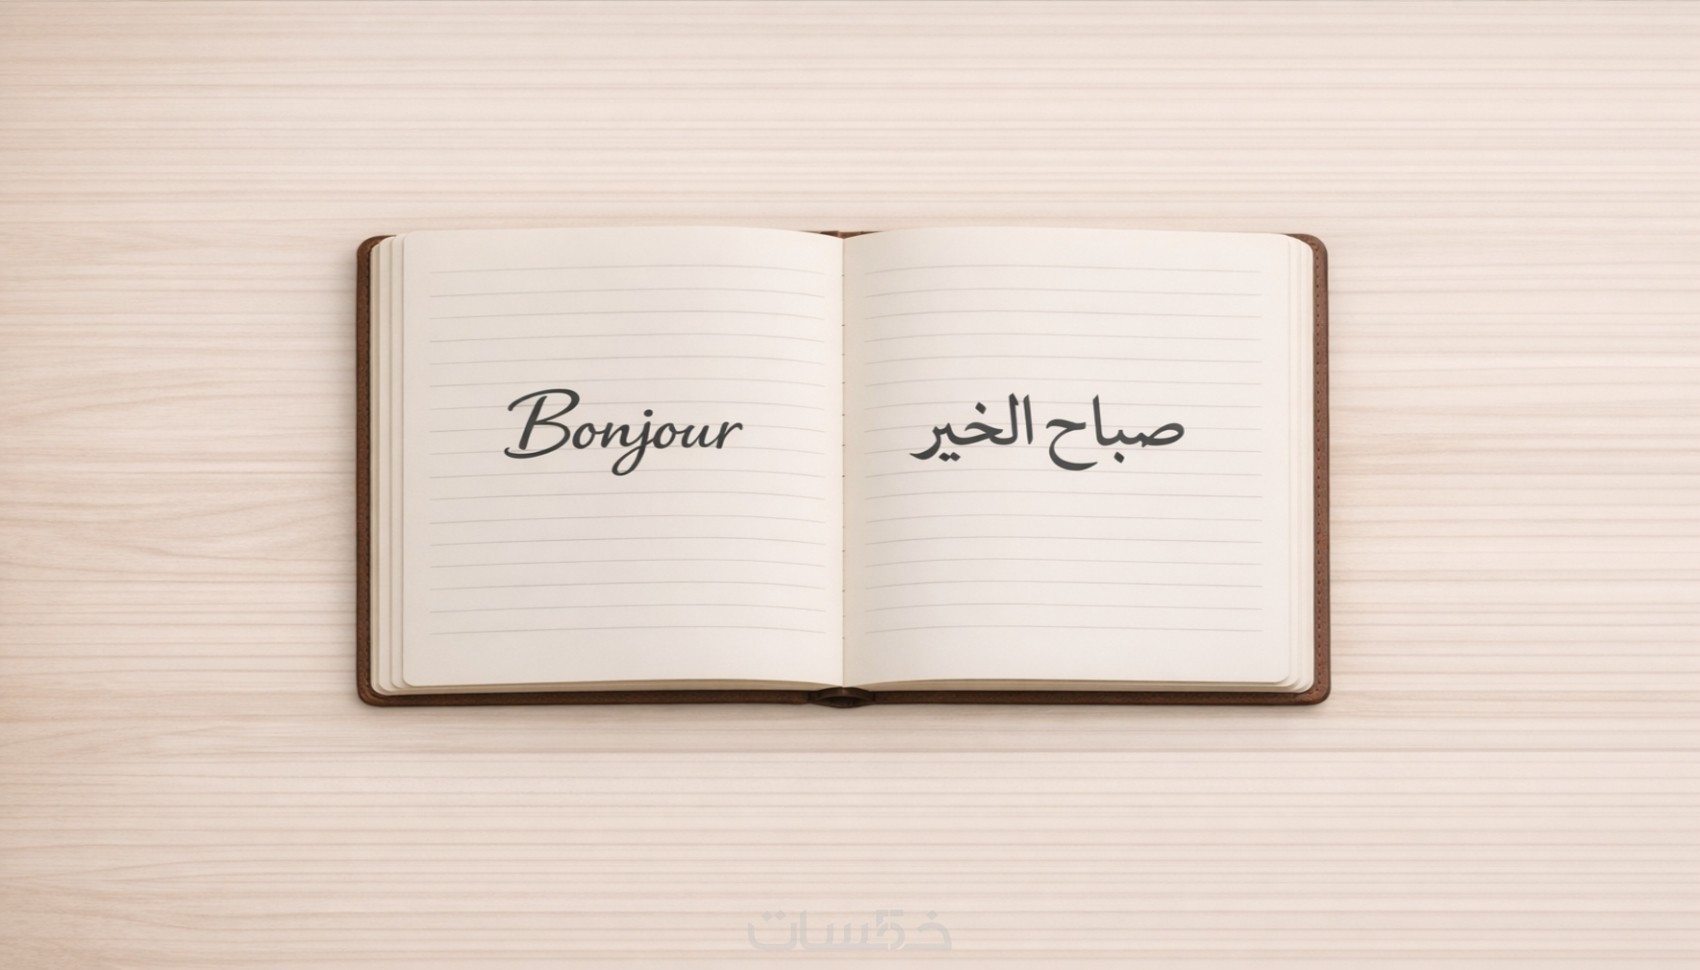 Bonjour
صباح الخير
خمسات